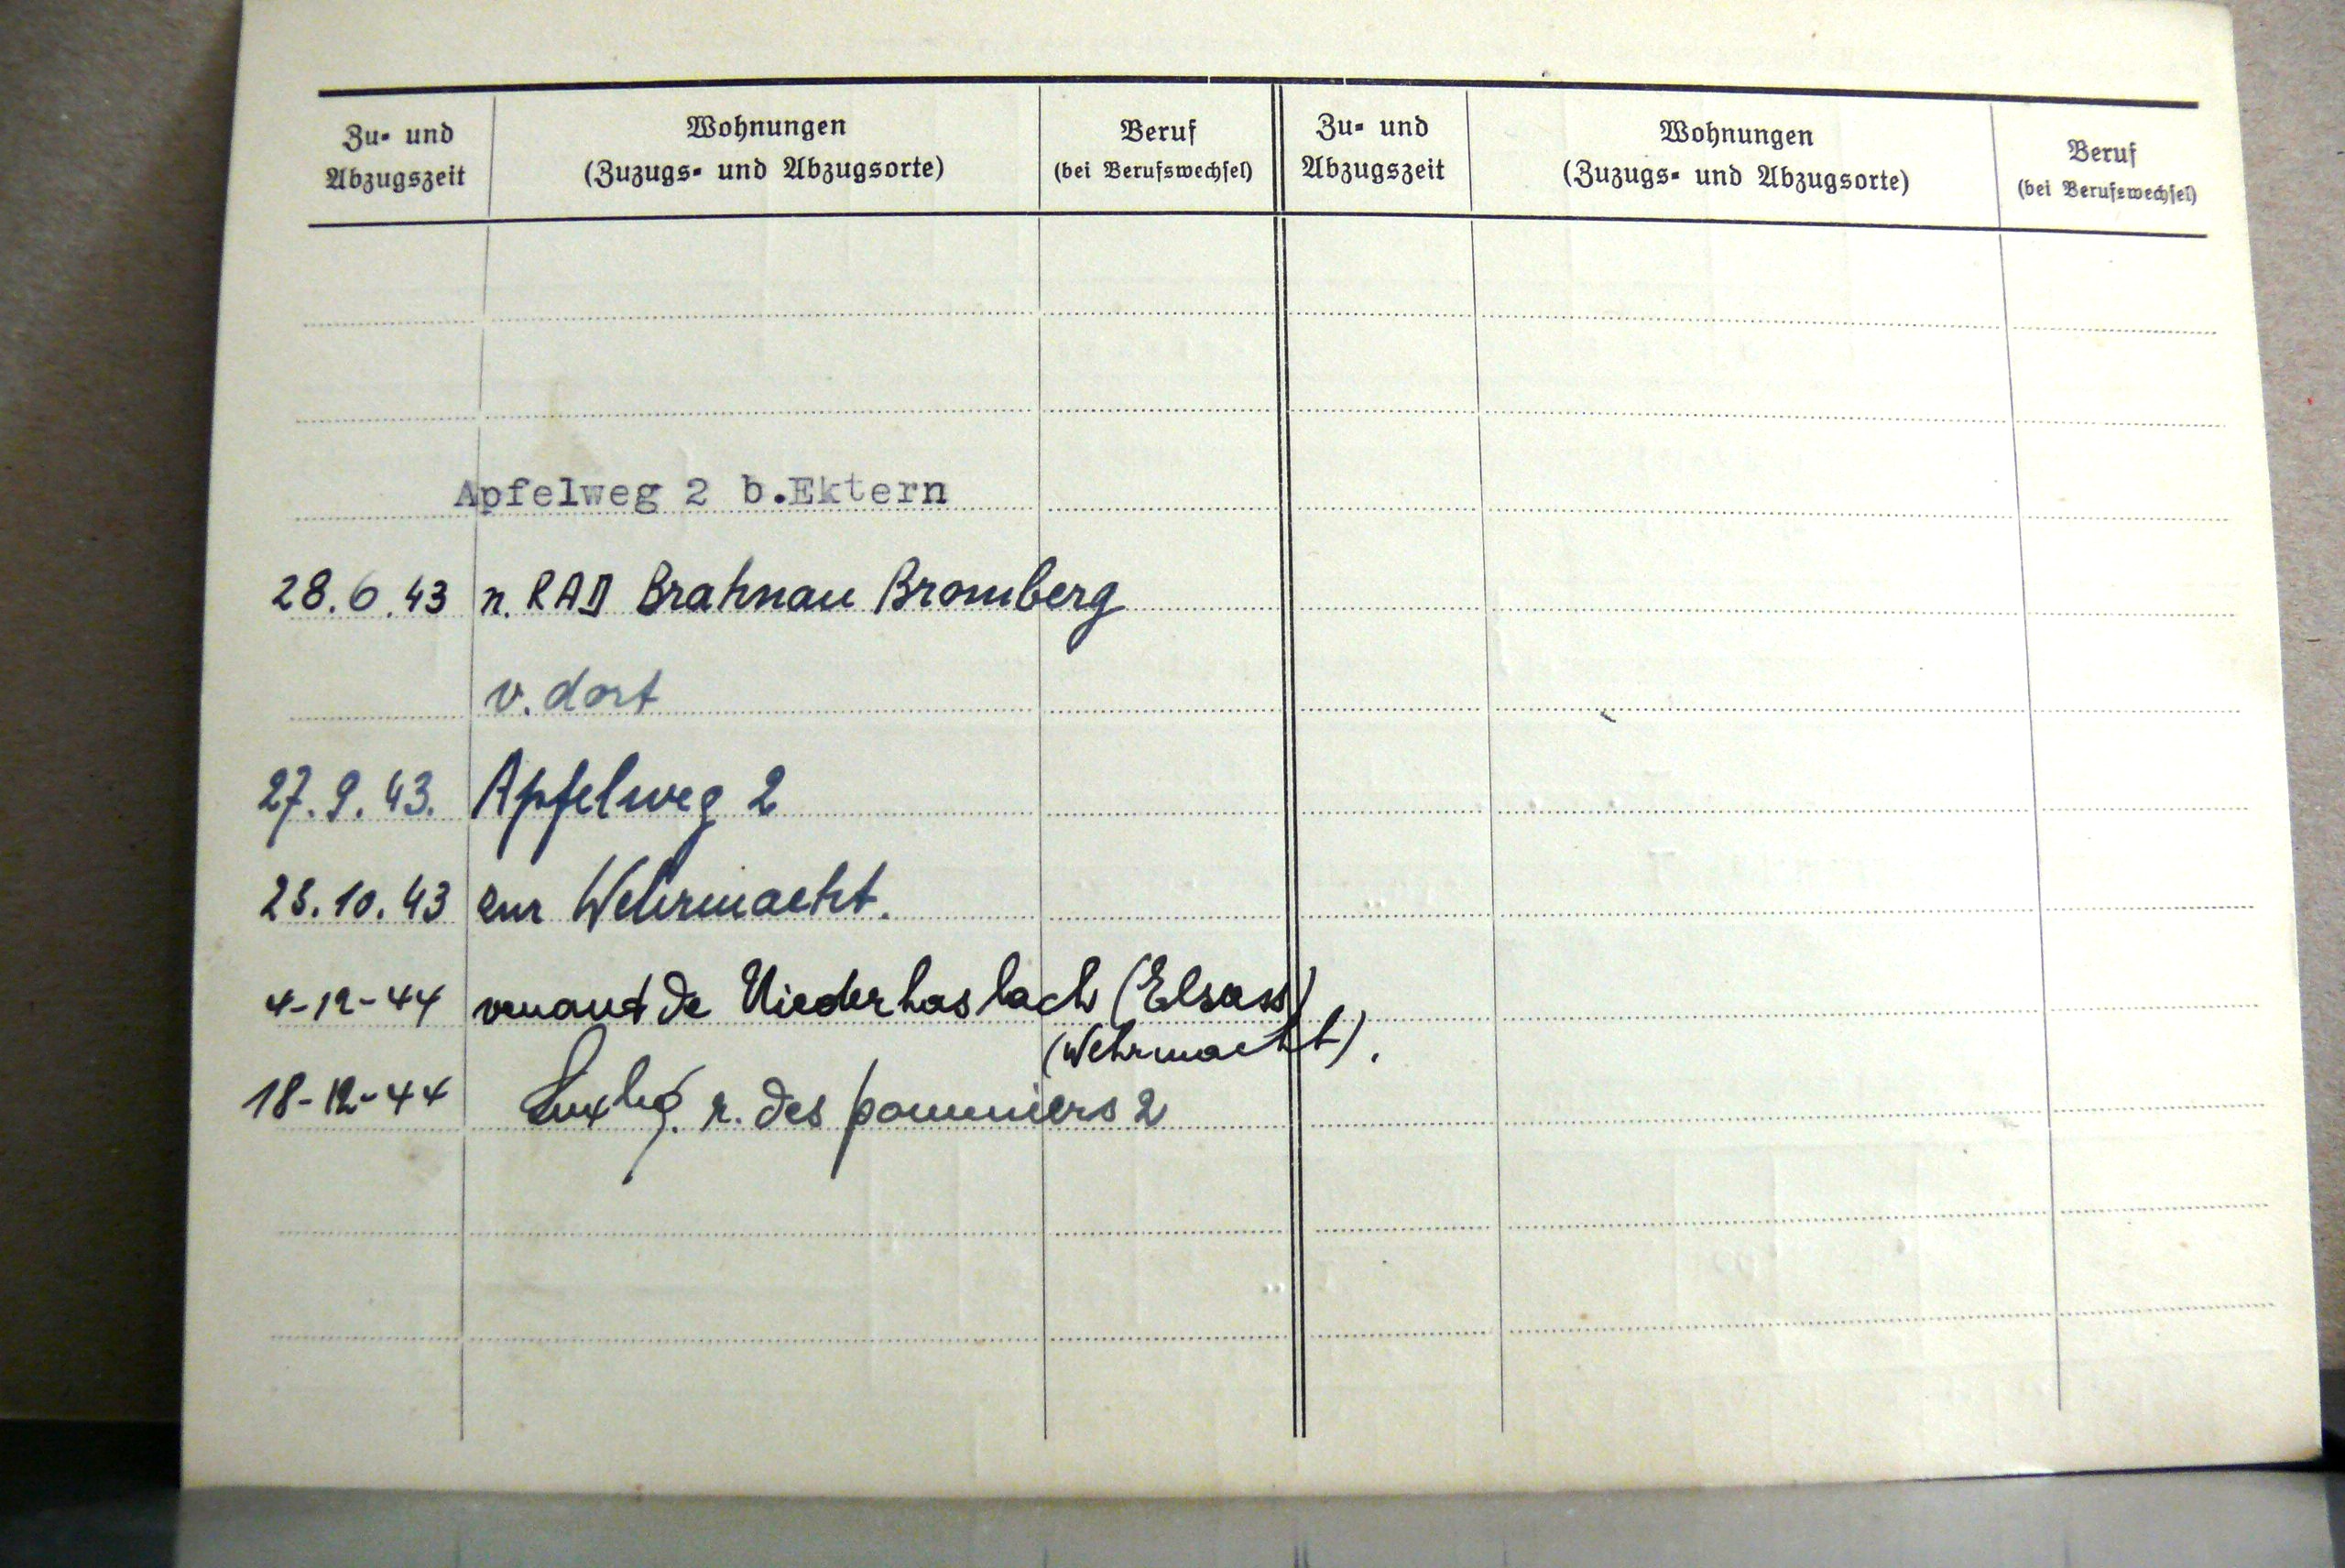 Zu- und Abzugszeit
Wohnungen
(Zuzugs- und Abzugsorte)
Beruf
(bei Berufswechsel)
Zu- und Abzugszeit
Wohnungen
(Zuzugs- und Abzugsorte)
Beruf
(bei Berufswechsel)
Apfelweg 2 b.Ektern
28.6.43 n. RAD Brahnau Bromberg
v. dort
27.9.43. Apfelweg 2
23.10.43 zur Wehrmacht.
4-12-44 venant de Niederhaslach (Elsass)
(Wehrmacht).
18-12-44 Luxbg. r. des pommiers 2